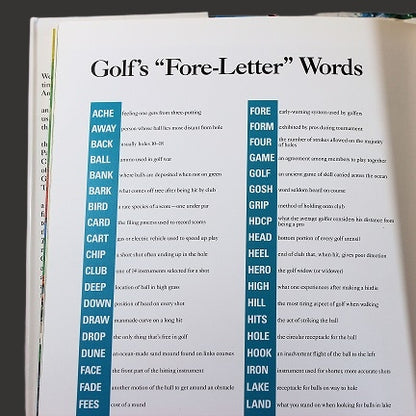 Golf's "Fore-Letter" Words
ACHE feeling one gets from three-putting
AWAY person whose ball lies most distant from hole
BACK usually holes 10-18
BALL ammo used in golf war
BANK where balls are deposited when not on green
BARK what comes off tree after being hit by club
BIRD a rare species of a score—one under par
CARD the filing process used to record scores
CART gas or electric vehicle used to speed up play
CHIP a short shot often ending up in the hole
CLUB one of 14 instruments selected for a shot
DEEP location of ball in high grass
DOWN position of head on every shot
DRAW manmade curve on a long hit
DROP the only thing that's free in golf
DUNE an ocean-made sand mound found on links courses
FACE the front part of the hitting instrument
FADE another motion of the ball to get around an obstacle
FEES cost of a round
FORE early-warning system used by golfers
FORM exhibited by pros during tournament
FOUR the number of strokes allowed on the majority
of holes
GAME an agreement among members to play together
GOLF an ancient game of skill carried across the ocean
GOSH word seldom heard on course
GRIP method of holding onto club
HDCP what the average golfer considers his distance from
being a pro
HEAD bottom portion of every golf utensil
HEEL end of club that, when hit, gives poor direction
HERO the golf widow (or widower)
HIGH what one experiences after making a birdie
HILL the most tiring aspect of golf when walking
HITS the act of striking the ball
HOLE the circular receptacle for the ball
HOOK an inadvertent flight of the ball to the left
IRON instrument used for shorter, more accurate shots
LAKE receptacle for balls on way to hole
LAND what you stand on when looking for balls in lake